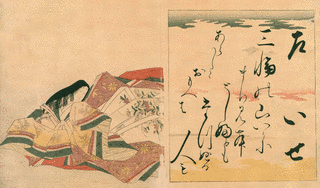 左 いせ
三輪の山いかに
まち見む年
ふとも
たつぬる
人も
あらしと
おもへは